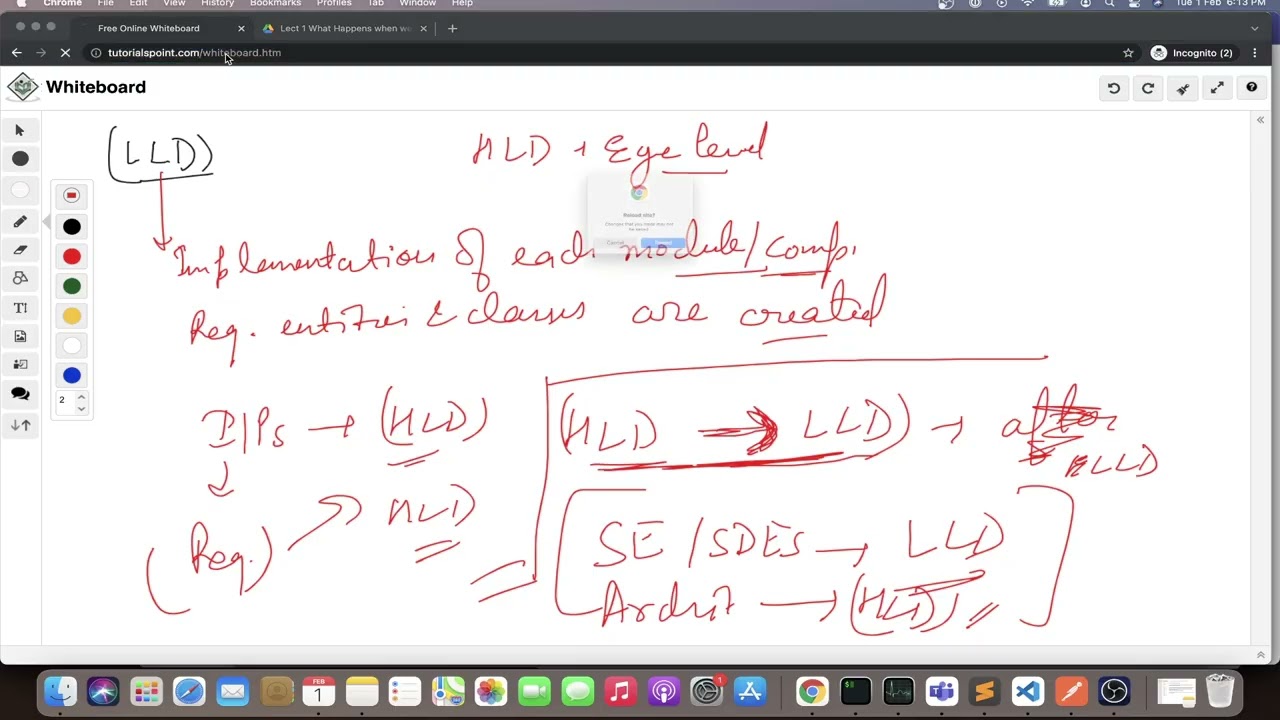 Chrome File Edit View History Bookmarks Profiles Tab Window Help Tue 1 Feb 6:13 PM
Free Online Whiteboard Lect 1 What Happens when we
tutorialspoint.com/whiteboard.htm Incognito (2)
Whiteboard
(LLD) HLD + Eye level
Reload site?
Changes that you made may not be saved.
Cancel Reload
Implementation of each module/comp.
Req. entities & classes are created
2
I/Ps → (HLD) (HLD → LLD) → after
HLD
(Req.) HLD SE/SDES → LLD
Archit → (HLD)
FEB
1
1